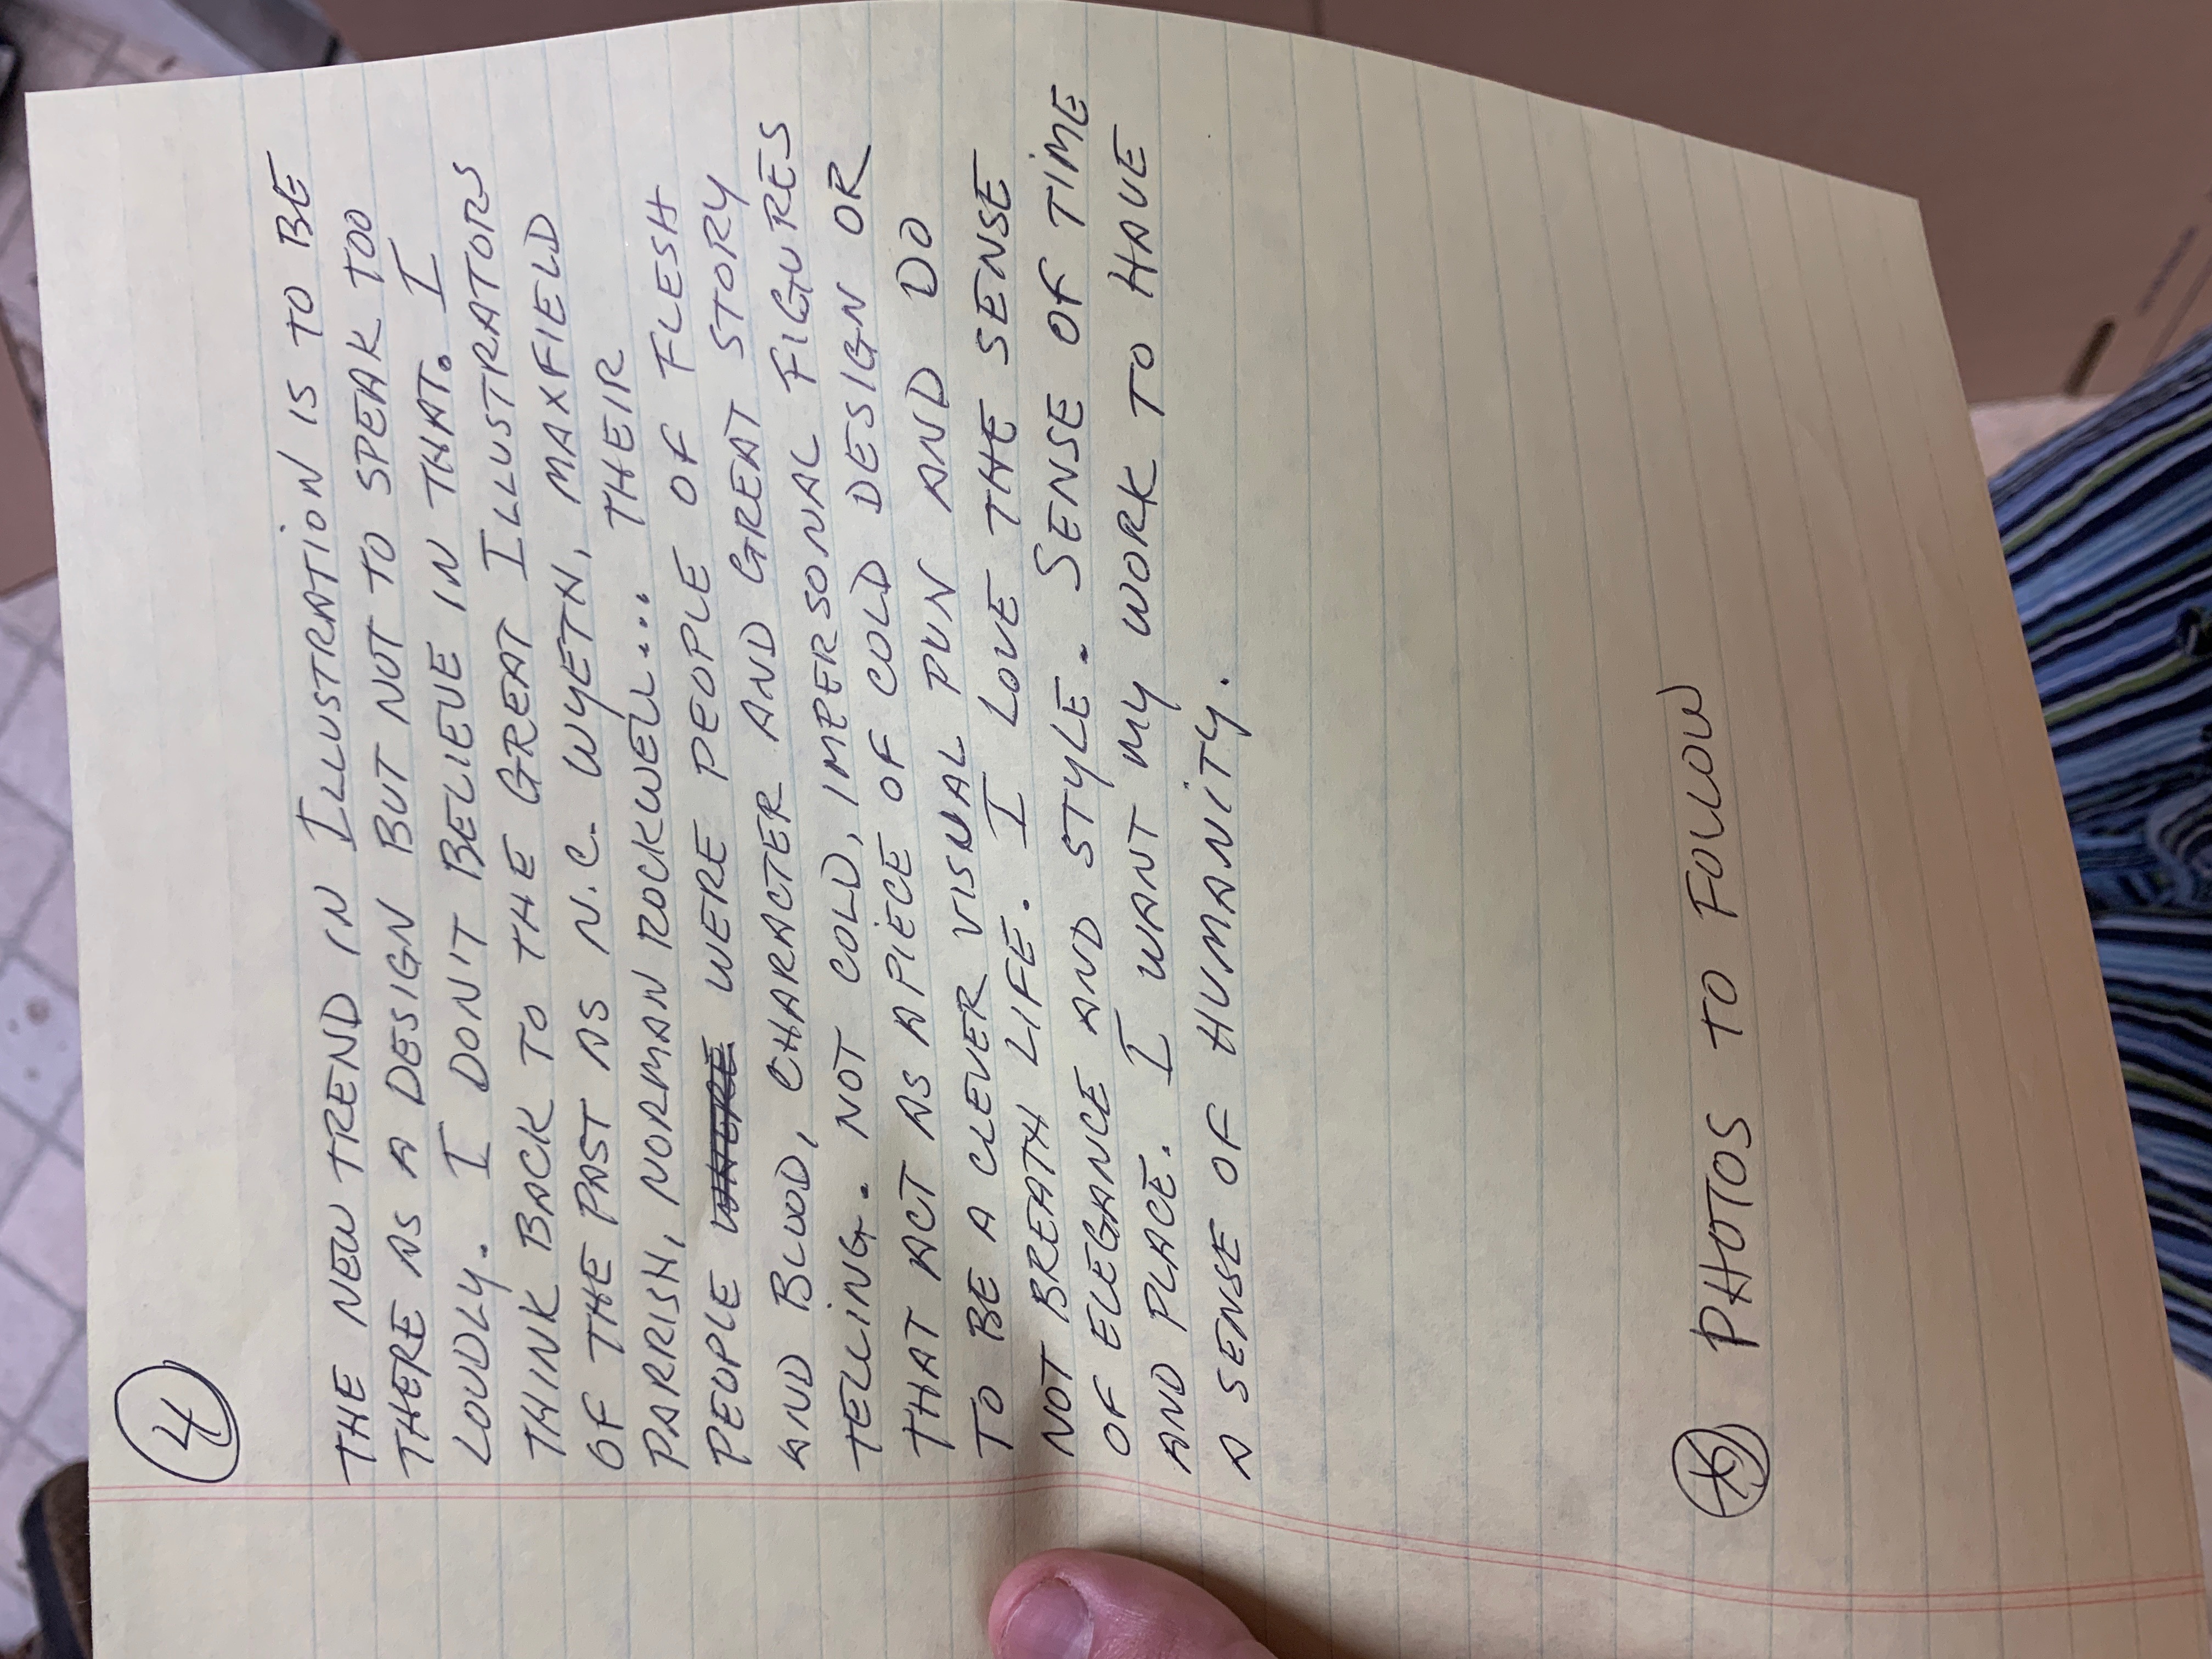 4
THE NEW TREND IN ILLUSTRATION IS TO BE
THERE AS A DESIGN BUT NOT TO SPEAK TOO
LOUDLY. I DON'T BELIEVE IN THAT. I
THINK BACK TO THE GREAT ILLUSTRATORS
OF THE PAST AS N.C. WYETH, MAXFIELD
PARRISH, NORMAN ROCKWELL... THEIR
PEOPLE WHERE WERE PEOPLE OF FLESH
AND BLOOD, CHARACTER AND GREAT STORY
TELLING. NOT COLD, IMPERSONAL FIGURES
THAT ACT AS A PIECE OF COLD DESIGN OR
TO BE A CLEVER VISUAL PUN AND DO
NOT BREATH LIFE. I LOVE THE SENSE
OF ELEGANCE AND STYLE. SENSE OF TIME
AND PLACE. I WANT MY WORK TO HAVE
A SENSE OF HUMANITY.
* PHOTOS TO FOLLOW